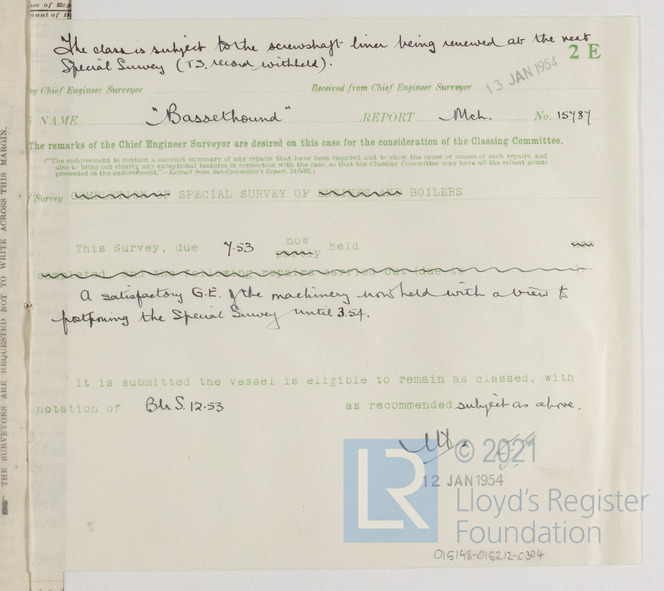 The class is subject to the screwshaft liner being renewed at the next
Special Survey (T.S. record withheld).
2 E
13 JAN 1954
by Chief Engineer Surveyor Received from Chief Engineer Surveyor
NAME "Bassethound" REPORT Mch. No. 15787
The remarks of the Chief Engineer Surveyor are desired on this case for the consideration of the Classing Committee.
("The endorsement to contain a succinct summary of any repairs that have been required and to show the cause or causes of such repairs, and
also to bring out clearly any exceptional features in connection with the case, so that the Classing Committee may have all the salient points
presented in the endorsement."—Extract from Sub-Committee's Report, 24/5/92.)
Survey COMPLETION OF SPECIAL SURVEY OF ENGINES AND BOILERS
now
This Survey, due 7.53 held
A satisfactory G.E. of the machinery now held with a view to
postponing the Special Survey until 3.54.
it is submitted the vessel is eligible to remain as classed, with
notation of BlrS. 12.53 as recommended subject as above.
12 JAN 1954
© 2021
LR
Lloyd's Register
Foundation
015198-015212-0304
THE SURVEYORS ARE REQUESTED NOT TO WRITE ACROSS THIS MARGIN.